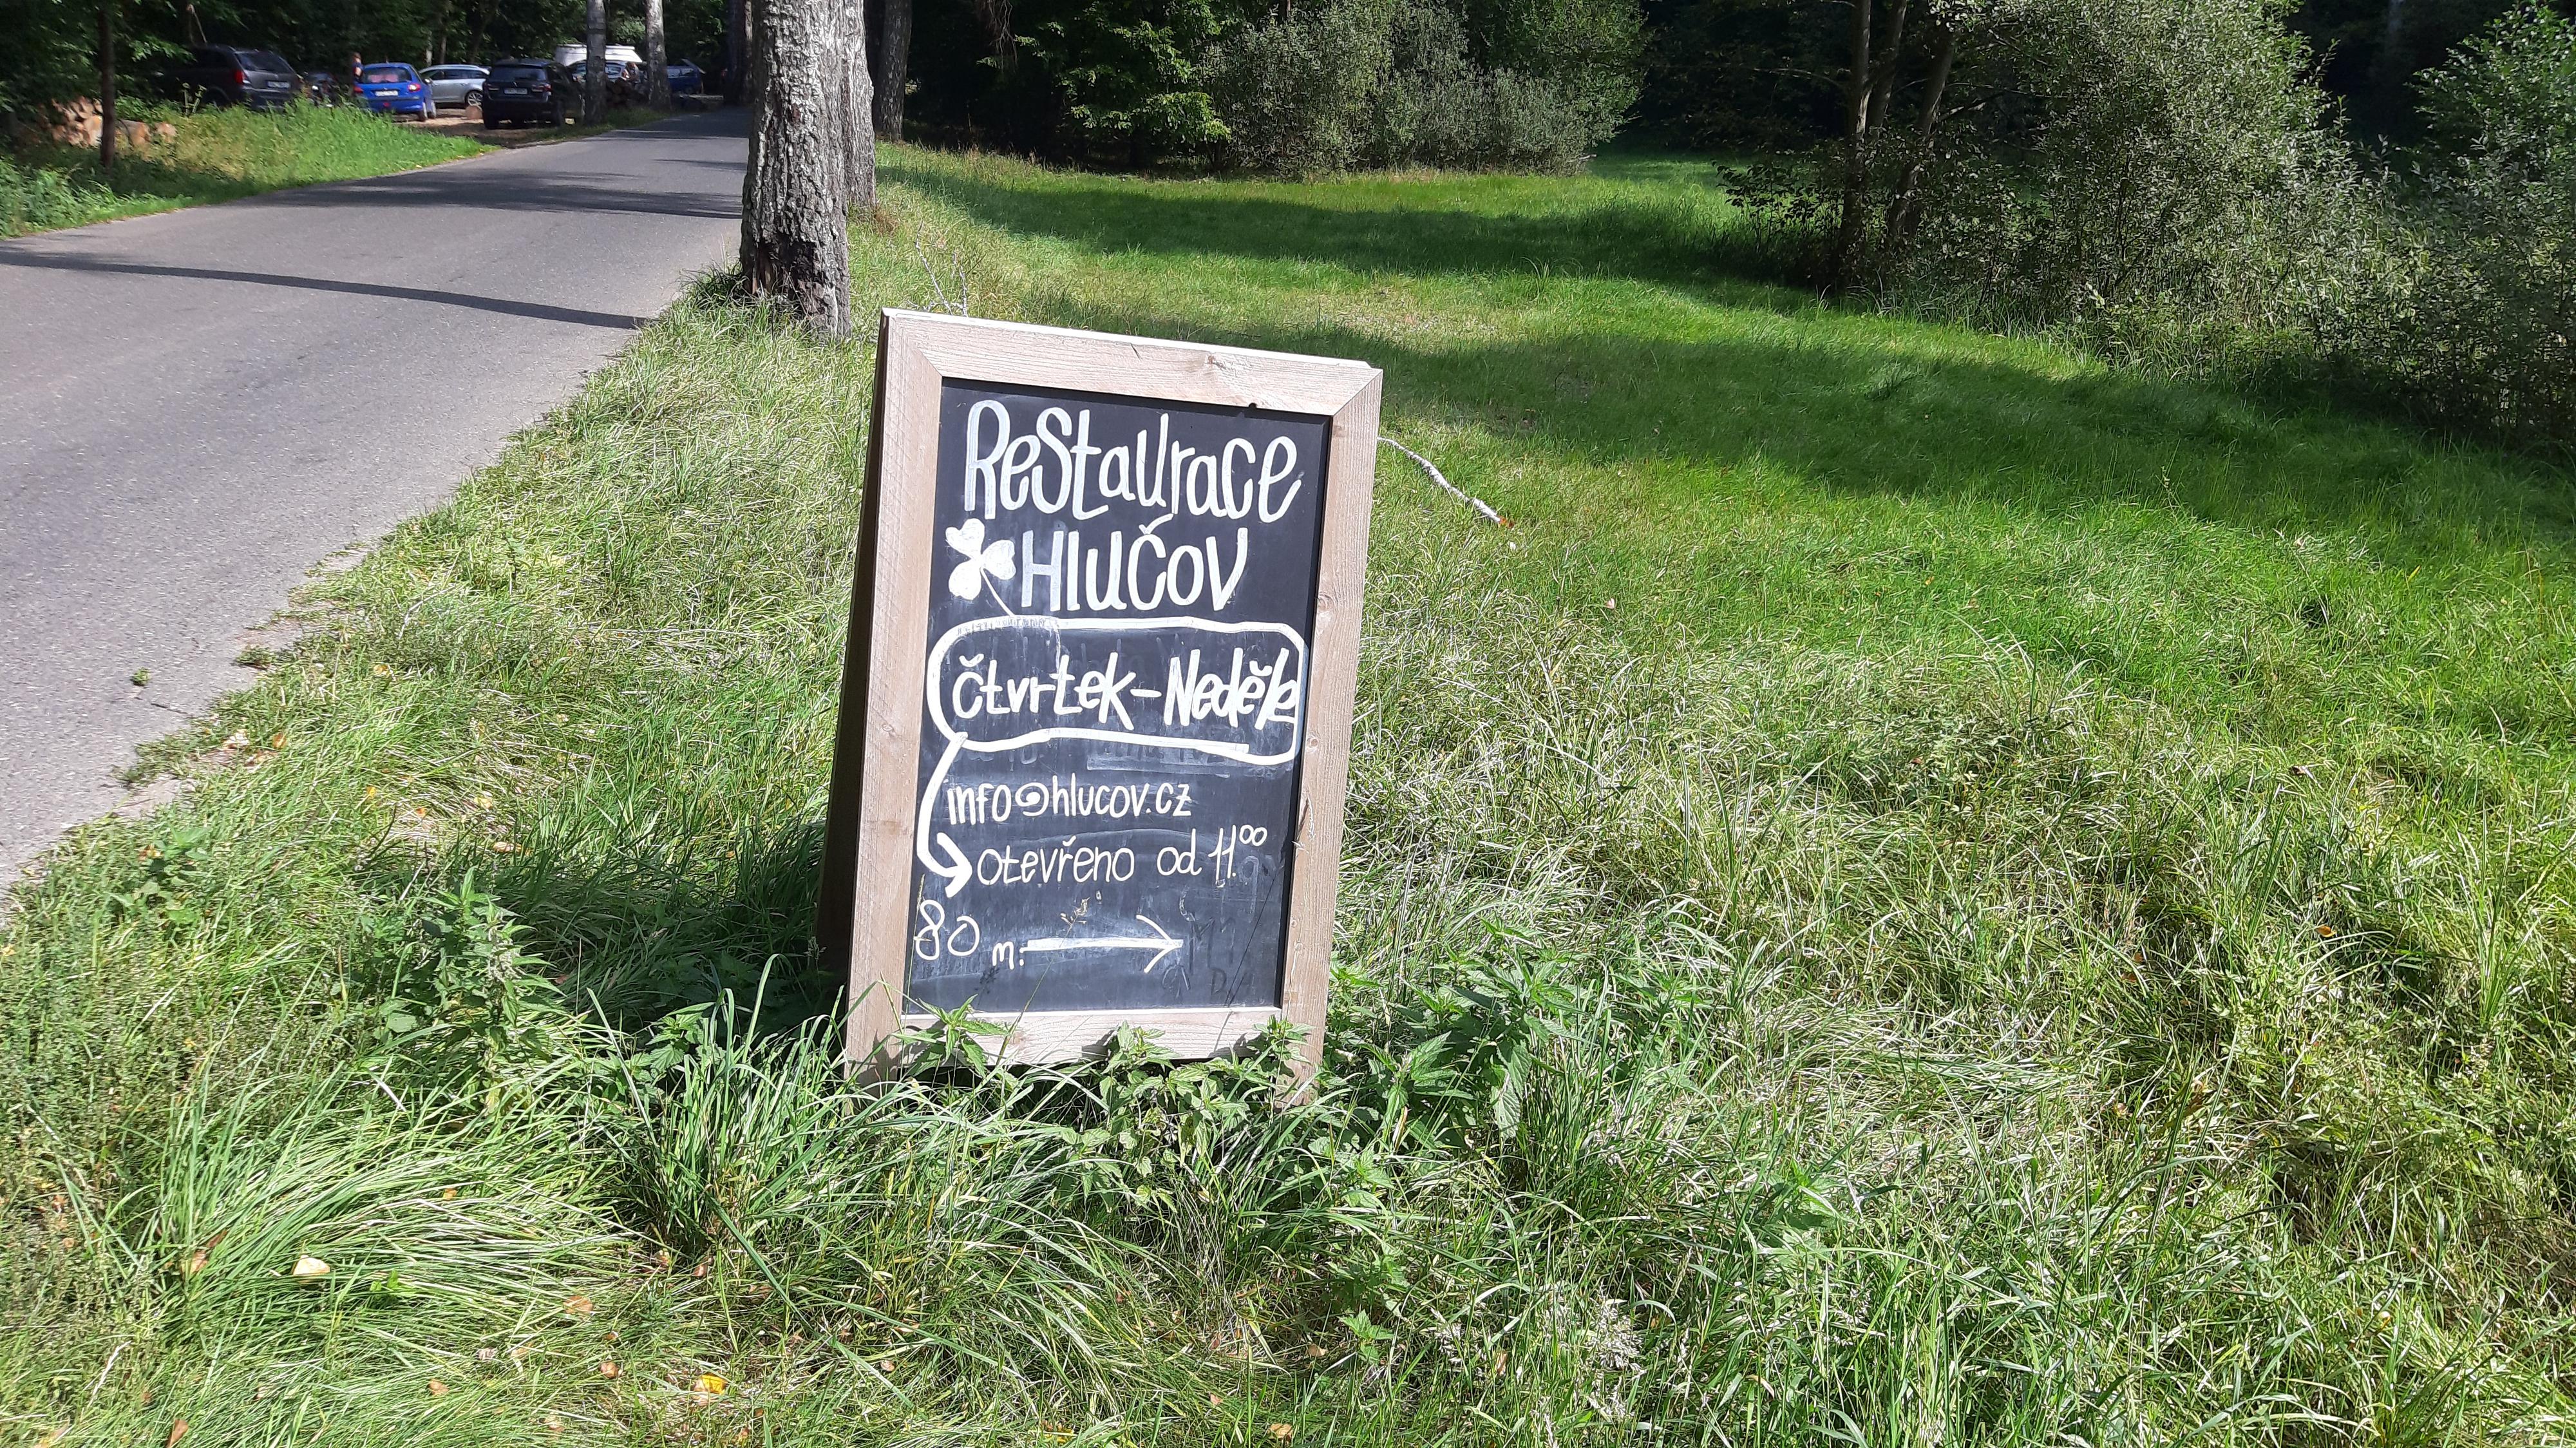 Restaurace
Hlučov
čtvrtek-Neděle
info@hlucov.cz
otevřeno od 11.00
80 m.